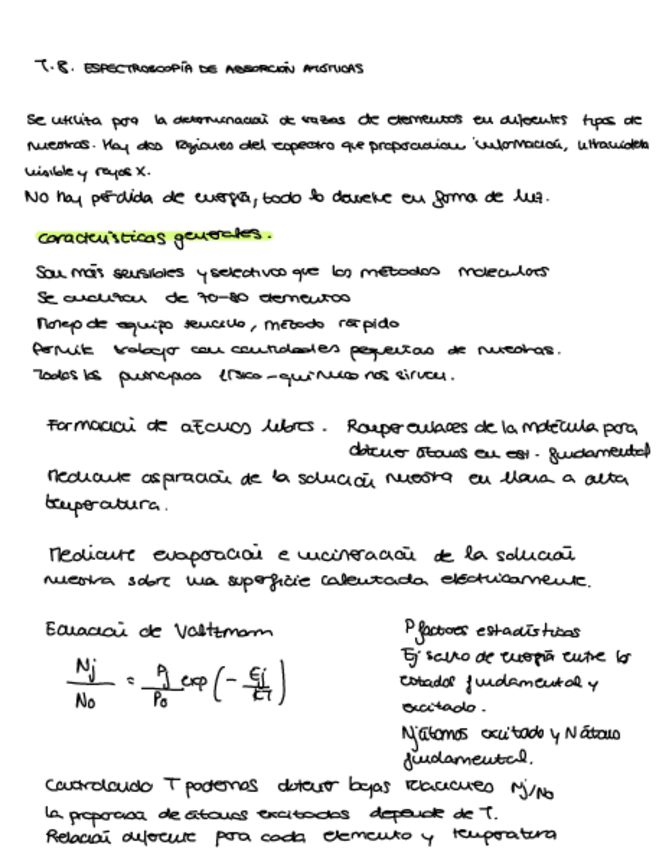 T.8. ESPECTROSCOPÍA DE ABSORCIÓN ATÓMICAS
Se utiliza para la determinación de trazas de elementos en diferentes tipos de
muestras. Hay dos regiones del espectro que proporcionan información, ultravioleta
visible y rayos X.
No hay pérdida de energía, todo lo devuelve en forma de luz.
Características generales.
Son más sensibles y selectivos que los métodos moleculares
Se analizan de 70-80 elementos
Manejo de equipo sencillo, método rápido
Permite trabajar con cantidades pequeñas de muestras.
Todos los principios físico-químico nos sirven.
Formación de átomos libres. Romper enlaces de la molécula para
obtener átomos en est. fundamental
Mediante aspiración de la solución muestra en llama a alta
temperatura.
Mediante evaporación e incineración de la solución
muestra sobre una superficie calentada eléctricamente.
Ecuación de Valtzmann
Nj/No = Pj/Po exp (- Ej/KT)
P factores estadísticos
Ej salto de energía entre los
estados fundamental y
excitado.
Nj átomos excitado y N átomo
fundamental.
Controlando T podemos obtener bajas relaciones Nj/No
la proporción de átomos excitados depende de T.
Relación diferente para cada elemento y temperatura